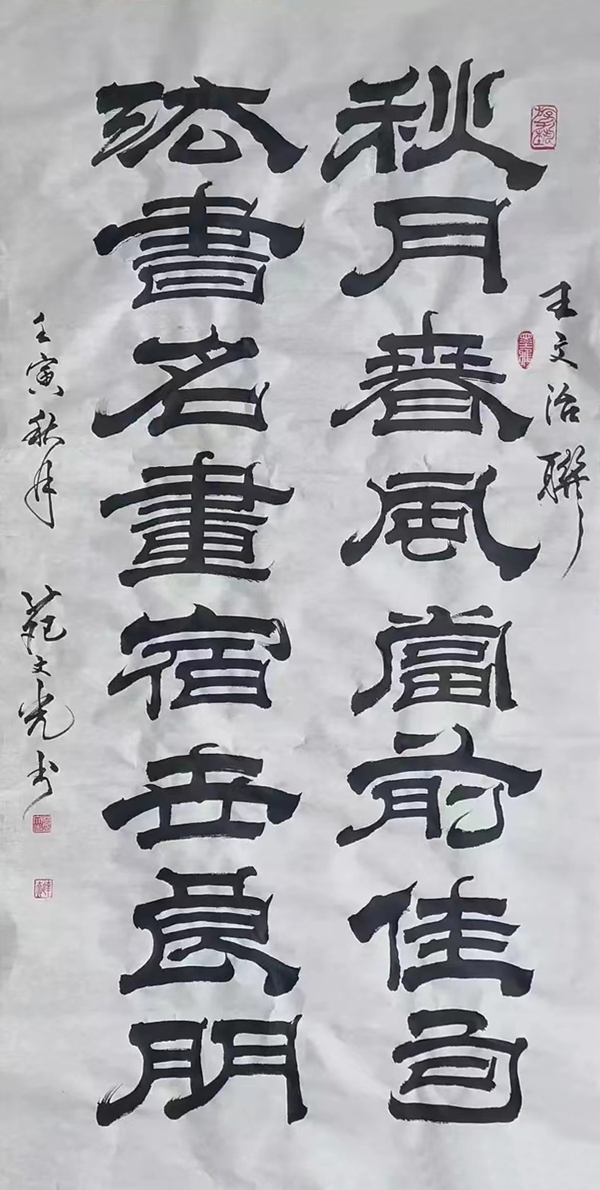 秋月春風當前佳句
王文治聯
法書名畫宿世良朋
壬寅秋月
范文光书